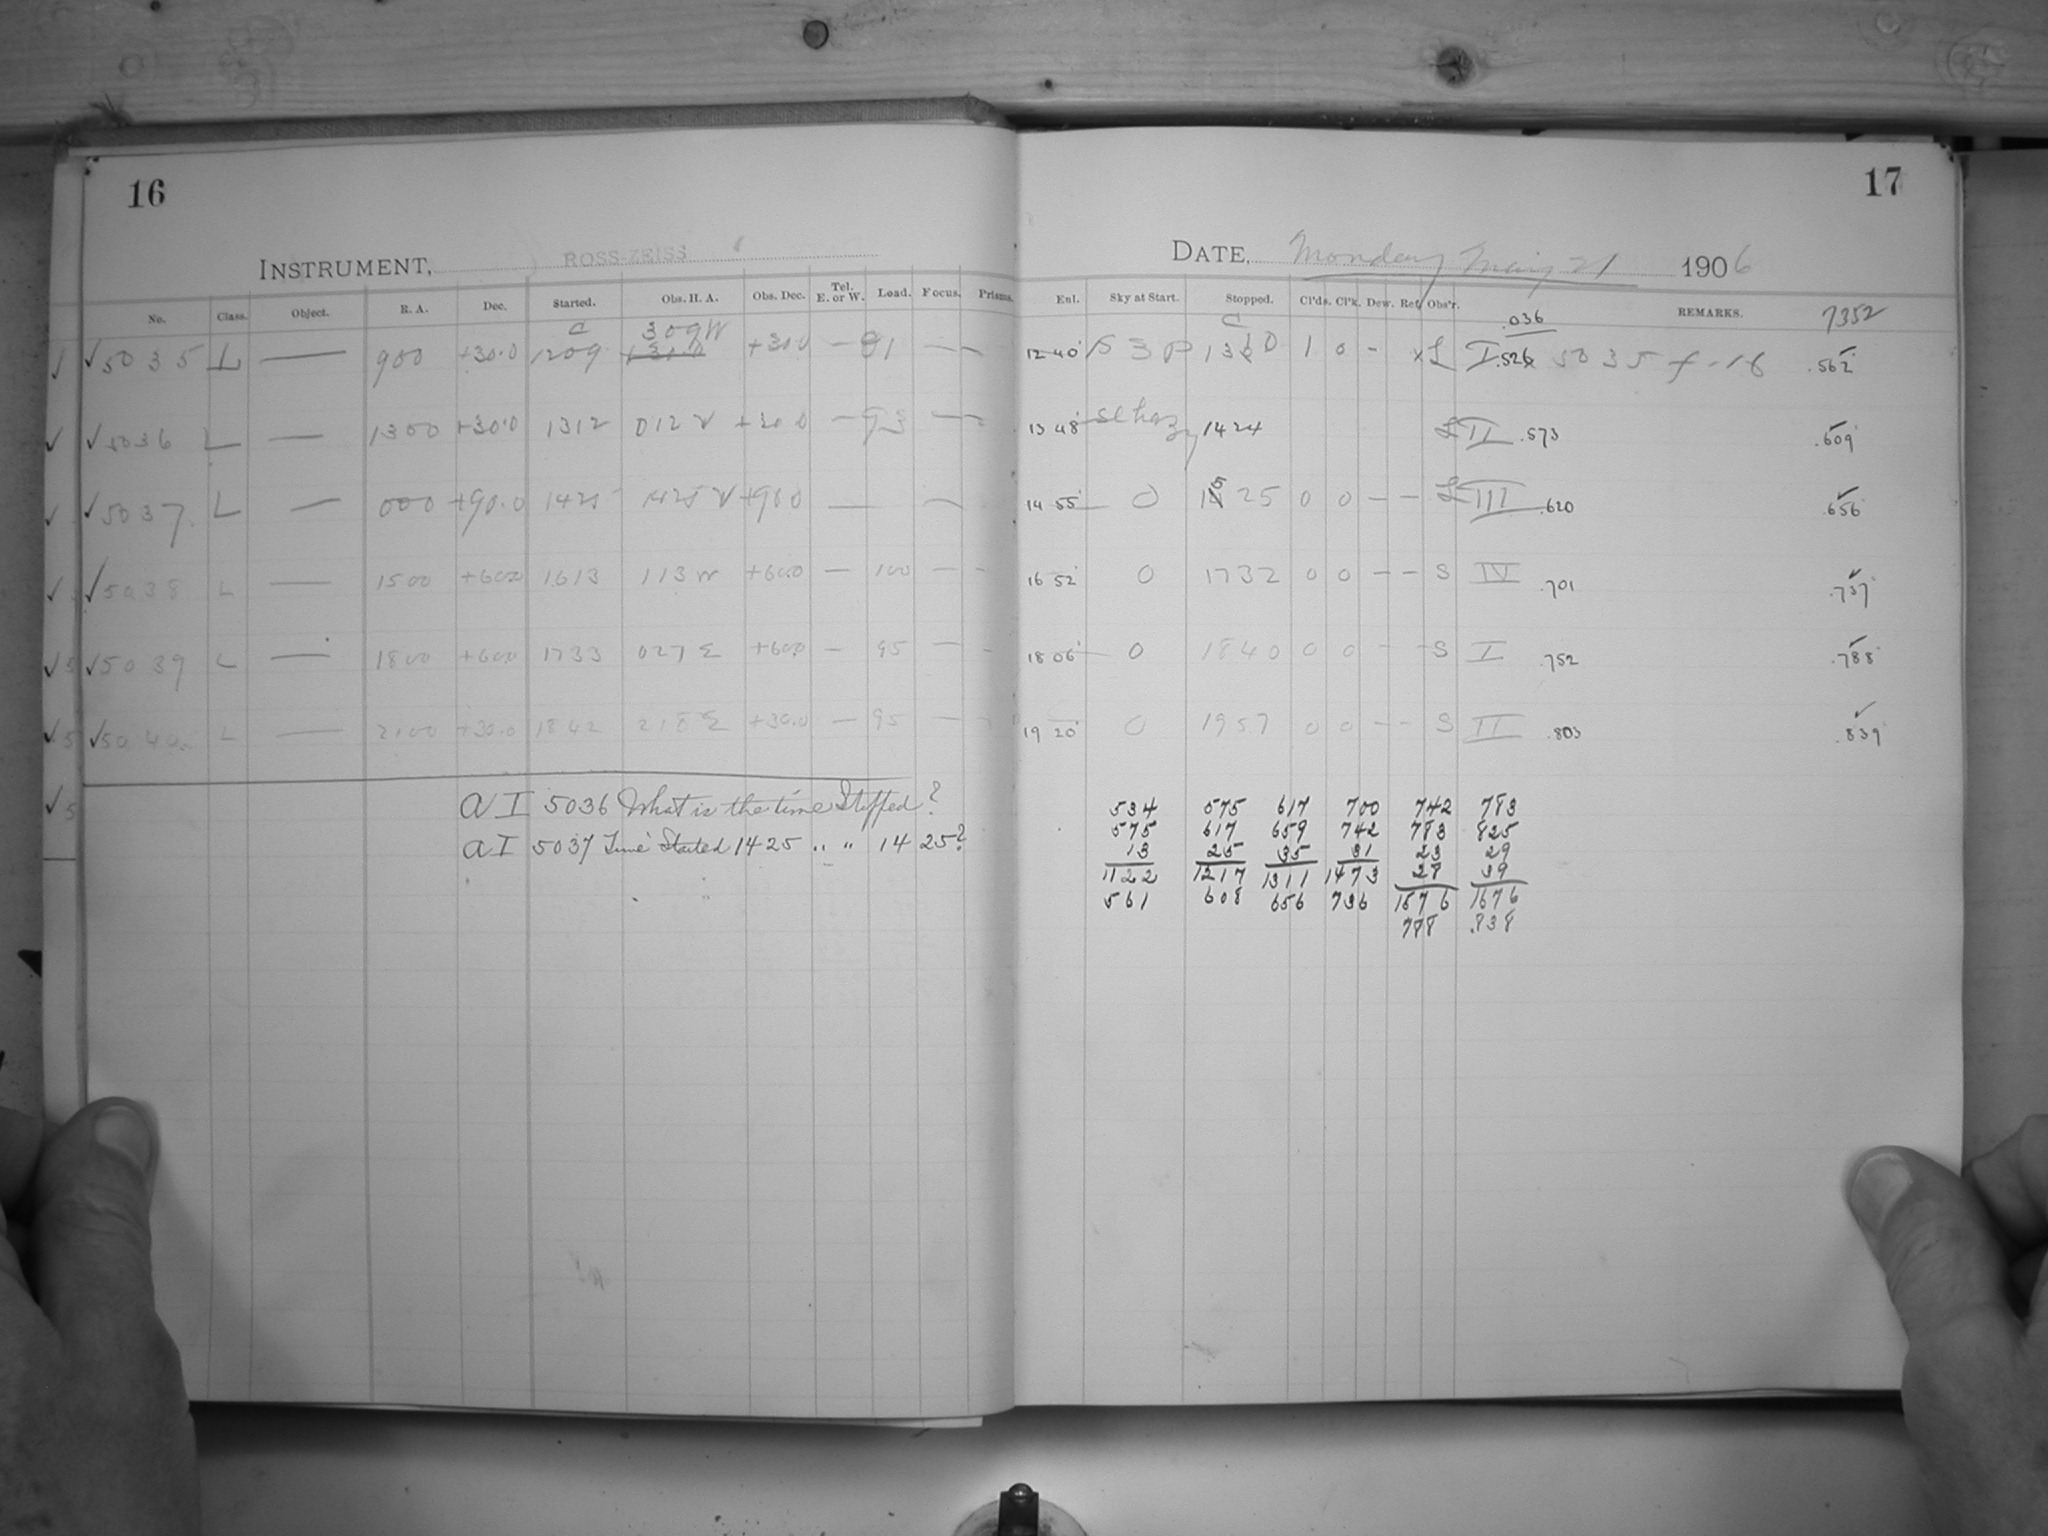 16
INSTRUMENT, ROSS-ZEISS
No. Class. Object. R. A. Dec. Started. Obs. H. A. Obs. Dec. Tel. E. or W. Load. Focus. Prisms.
C 309W
✓ ✓5035 L — 900 +30.0 1209 +30.0 — 91 — —
✓ ✓5036 L — 1300 +30.0 1312 012 W +30.0 — 93 — —
✓ ✓5037. L — 000 +90.0 1425 1425 W +90.0 — —
✓ ✓5038 L — 1500 +60.0 1613 113 W +60.0 — 100 — —
✓5 ✓5039 L — 1800 +60.0 1733 027 E +60.0 — 95 — —
✓5 ✓5040. L — 2100 +30.0 1842 218 E +30.0 — 95 — —
✓5
A I 5036 What is the time Stopped?
A I 5037 Time Started 1425 " " 14 25?
17
DATE, Monday May 21 1906
Enl. Sky at Start. Stopped. Cl'ds. Cl'k. Dew. Ref. Obs'r. REMARKS. 7352
C .036
12 40 S 3 P 1310 1 0 - x L I .526 5035 f-16 .562
13 48 Sl hazy 1424 L II .573 .609
14 55 0 1525 0 0 — — L III .620 .656
16 52 0 1732 0 0 — — S IV .701 .737
18 06 0 1840 0 0 - - S I .752 .788
19 20 0 1957 0 0 - - S II .803 .839
534 575 617 700 742 783
575 617 659 742 783 825
13 25 35 31 23 29
1122 1217 1311 1473 28 39
561 608 656 736 1576 1676
788 .838